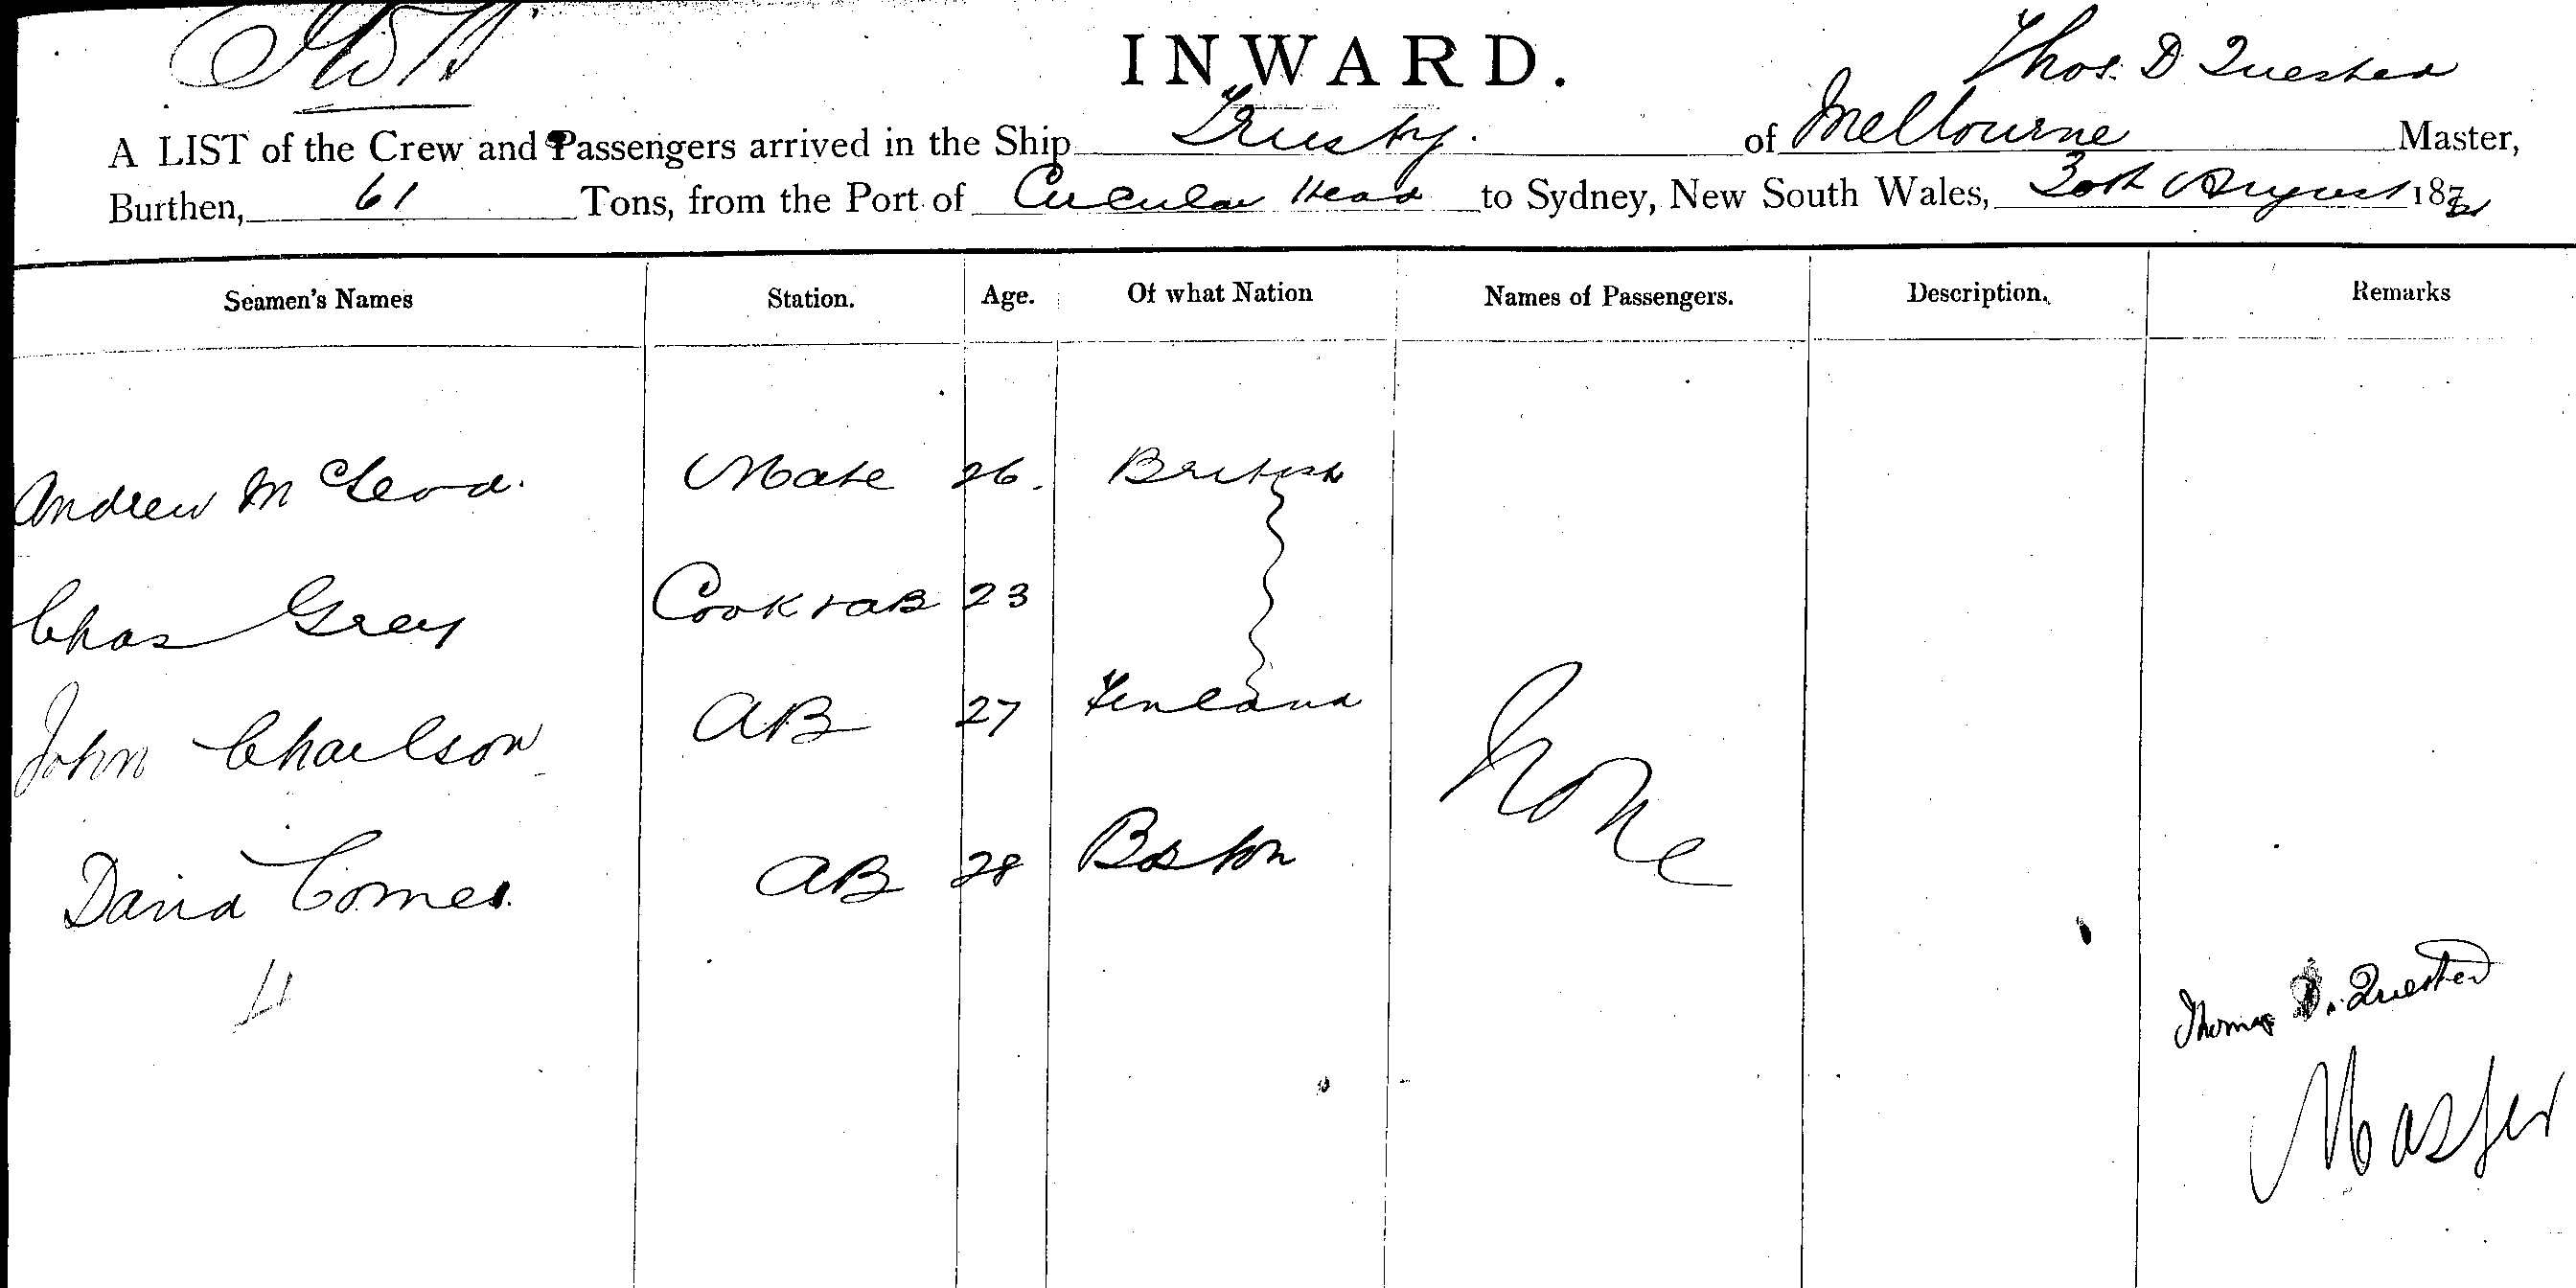 INWARD.
Thos. D Quested
A LIST of the Crew and Passengers arrived in the Ship Trusty. of Melbourne Master,
Burthen, 61 Tons, from the Port of Circular Head to Sydney, New South Wales, 30th August 187
Seamen's Names Station. Age. Of what Nation Names of Passengers. Description. Remarks
Andrew McLeod. Mate 26. British
Chas Grey Cook & AB 23
John Charlson AB 27 Finland
None
David Comes. AB 28 Boston
Thomas D. Quested
Master